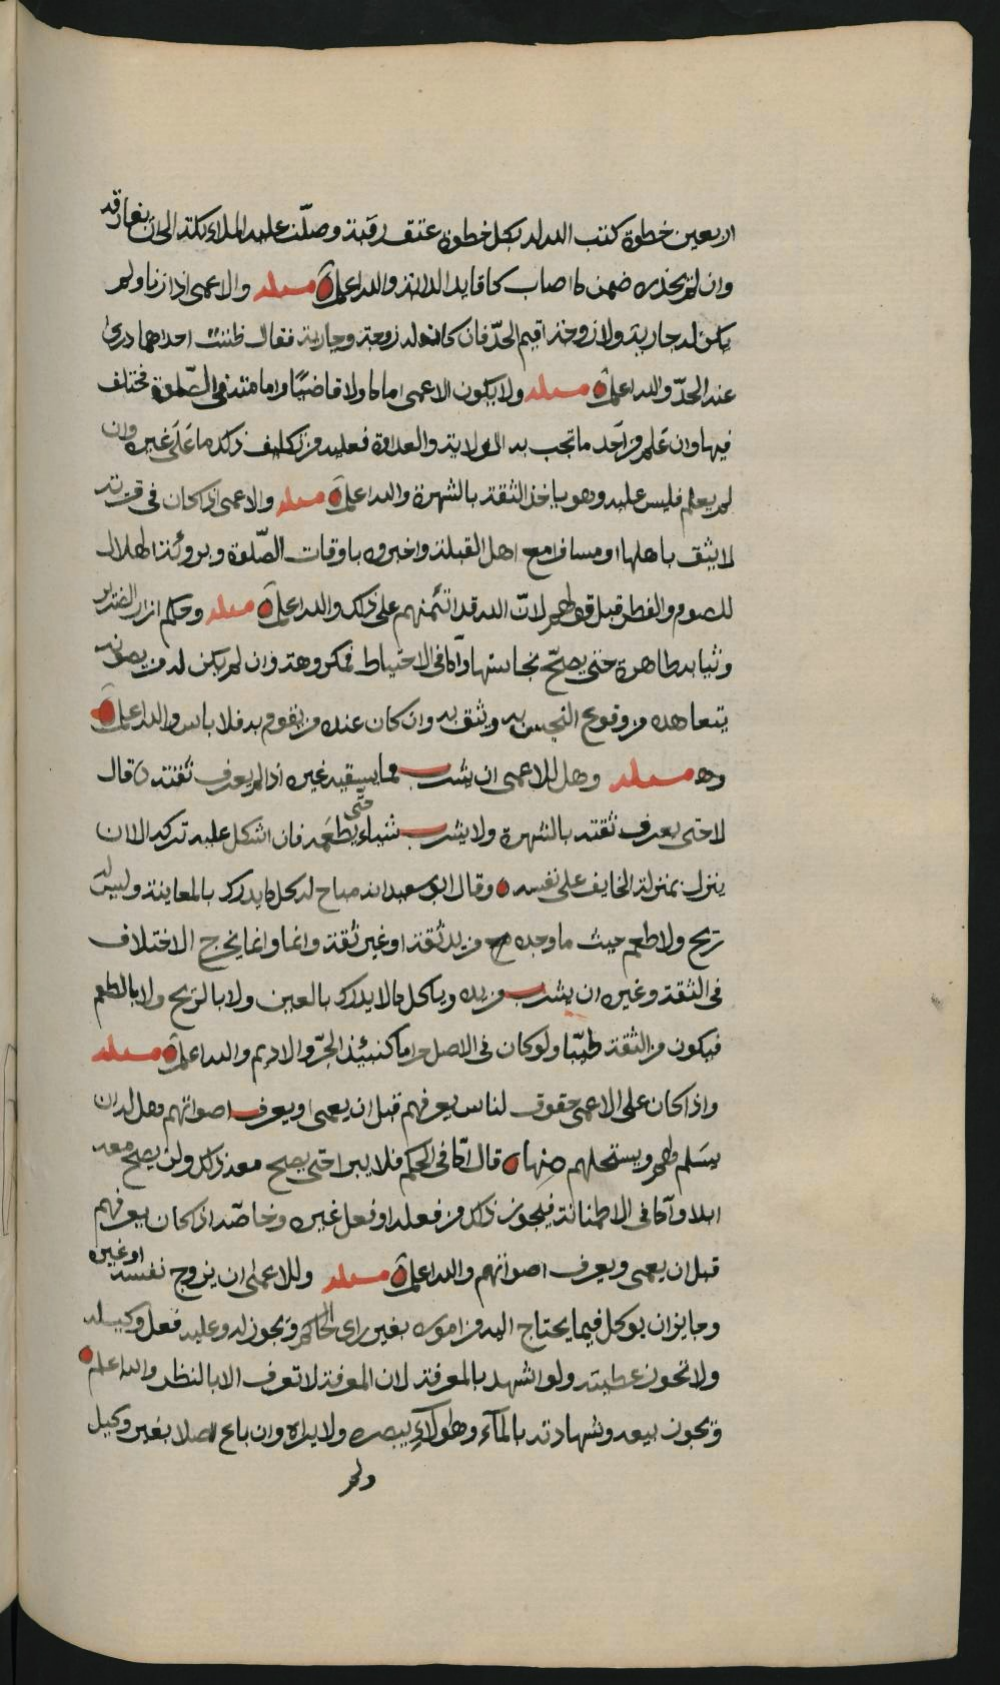 اربعين خطوة كتب الله له بكل خطوة عتق رقبة وصلّت عليه الملائكة الى ان يفارقه
وان لم يحذره ضمن ما اصاب كقايد الدابة والله اعلم مسئلة والاعمى اذا زنا ولم
يكن له جارية ولا زوجة اقيم الحدّ فان كانت له زوجة وجارية فقال ظننت احداهما درئ
عنه الحدّ والله اعلم مسئلة ولا يكون الاعمى اماما ولا قاضيًا وامامته في الصّلوة مختلف
فيها وان علم من احد ما تجب به الولاية والعداوة فعليه من تكليف ذلك ما على غيره وان
لم يعلم فليس عليه وهو ياخذ الثقة بالشهرة والله اعلم مسئلة والاعمى اذا كان في قرية
لا يثق باهلها او مسافرا مع اهل القبلة واخبروه باوقات الصّلوة وبروئة الهلال
للصوم والفطر قبل قولهم لانّ الله قد ائتمنهم على ذلك والله اعلم مسئلة وحكم ازار الضرير
وثيابه طاهرة حتى يصحّ نجاستها وامّا في الاحتياط فمكروهة وان لم يكن له من يصونه
يتعاهده من وقوع النجس به ويثق به وان كان عنده من يقوم به فلا باس والله اعلم
ومنه مسئلة وهل للاعمى ان يشرب مما يسقيه غيره اذا لم يعرف ثقته قال
لا حتى يعرف ثقته بالشهرة ولا يشرب شياء حتى يطعمه فان اشكل عليه تركه الا ان
ينزل بمنزلة الخايف على نفسه وقال ابو سعيد انه مباح له كل ما يدرك بالمعاينة وليس له
ريح ولا طعم حيث ما وجده من يد ثقة او غير ثقة وانما وانما يخرج الاختلاف
في الثقة وغيره ان يشرب من يده وياكل ما لا يدرك بالعين ولا بالريح ولا بالطعم
فيكون من الثقة طيّبا ولو كان في الاصل حراما كنبيذ الجرّ والاديم والله اعلم مسئلة
واذا كان على الاعمى حقوق لناس يعرفهم قبل ان يعمى او يعرف اصواتهم وهل له ان
يسلم لهم ويستحلهم منها قال امّا في الحكم فلا يبرا حتى يصح معه ذلك ولن يصح معه
ابدا وامّا في الاطمئنانة فيجوز ذلك من فعله او فعل غيره وخاصّة اذا كان يعرفهم
قبل ان يعمى ويعرف اصواتهم والله اعلم مسئلة وللاعمى ان يزوج نفسه او غيره
وجايز ان يوكل فيما يحتاج اليه من اموره بغير راى الحاكم ويجوز له وعليه فعل وكيله
ولا تجوز عطيته ولو اشهد بالمعرفة لان المعرفة لا تعرف الا بالنظر والله اعلم
ويجوز بيعه وشهادته بالمآء وهلولاء يبصره ولا يراه وان باع اصلا بغير وكيل
ولم